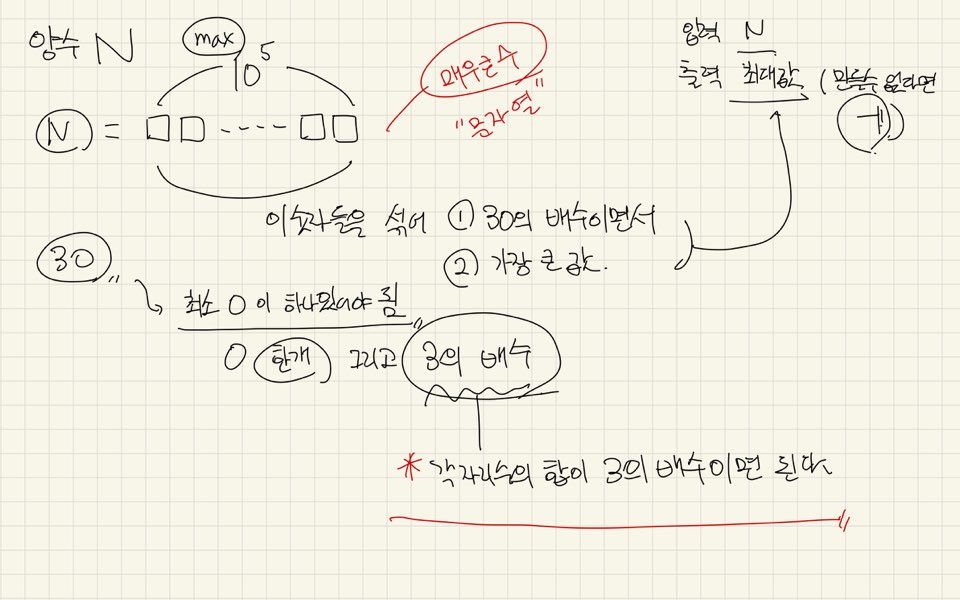 양수 N
max
10^5
매우큰수
"문자열"
입력 N
출력 최대값 (만들수 없다면
-1)
N = □□----□□
이숫자들을 섞어 ① 30의 배수이면서
② 가장 큰 값.
30"
최소 0이 하나있어야 됨"
0 한개 그리고 3의 배수
* 각자리수의 합이 3의 배수이면 된다.